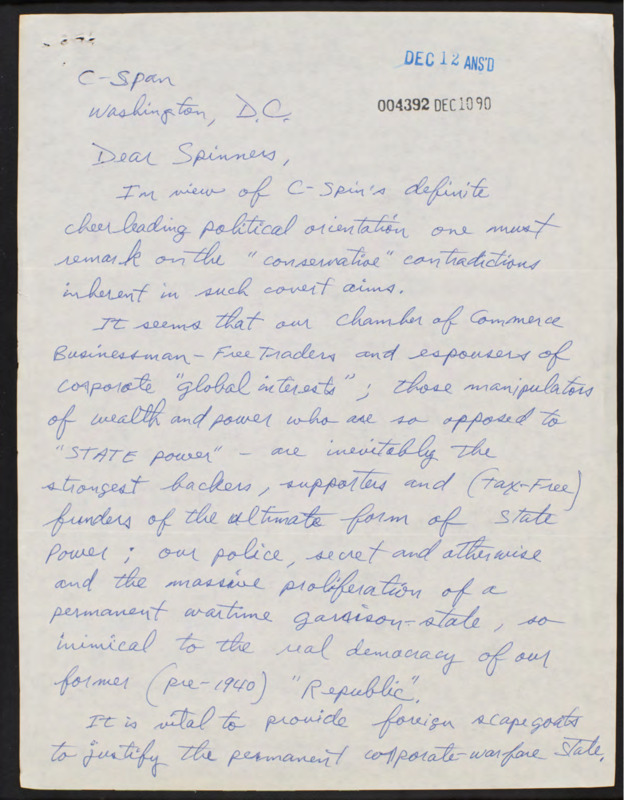 DEC 12 ANS'D
C-Span
004392 DEC 10 90
Washington, D.C.
Dear Spinners,
In view of C-Spin's definite
cheerleading political orientation one must
remark on the "conservative" contradictions
inherent in such covert aims.
It seems that our Chamber of Commerce
Businessman-Free Traders and espousers of
corporate "global interests"; those manipulators
of wealth and power who are so opposed to
"STATE power" - are inevitably the
strongest backers, supporters and (tax-Free)
funders of the ultimate form of State
Power; our police, secret and otherwise
and the massive proliferation of a
permanent wartime garrison-state, so
inimical to the real democracy of our
former (pre-1940) "Republic".
It is vital to provide foreign scapegoats
to justify the permanent corporate-warfare State.